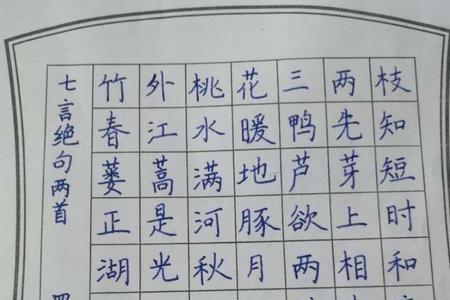 七言绝句两首
竹外桃花三两枝
春江水暖鸭先知
蒌蒿满地芦芽短
正是河豚欲上时
湖光秋月两相和